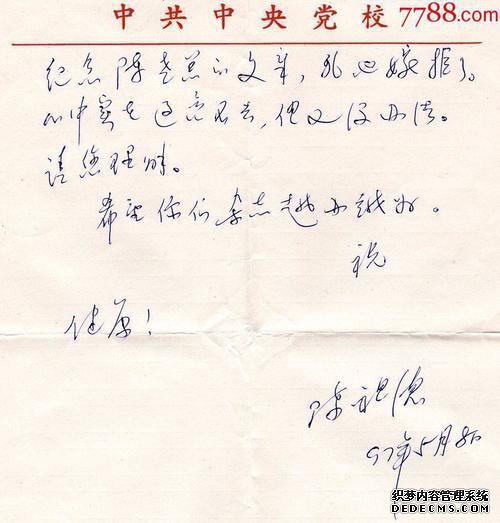 中共中央党校7788.com
纪念陈老总的文章，拒了。
心中实在过意不去，但又没办法。
请您理解。
希望你们杂志越办越好。
祝
健康！
陈祖德
97年5月8日
织梦内容管理系统
DEDECMS.COM